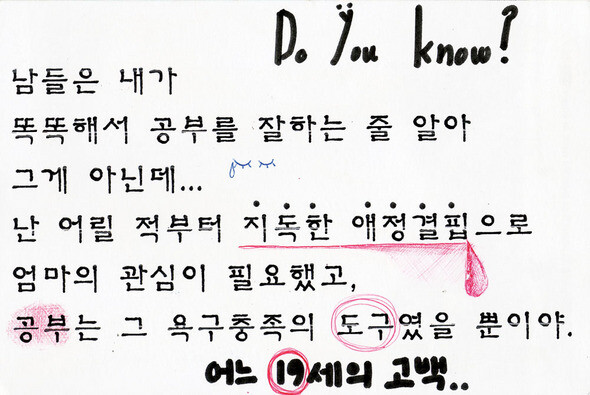 Do You know?
남들은 내가
똑똑해서 공부를 잘하는 줄 알아
그게 아닌데...
난 어릴 적부터 지독한 애정결핍으로
엄마의 관심이 필요했고,
공부는 그 욕구충족의 도구였을 뿐이야.
어느 19세의 고백..